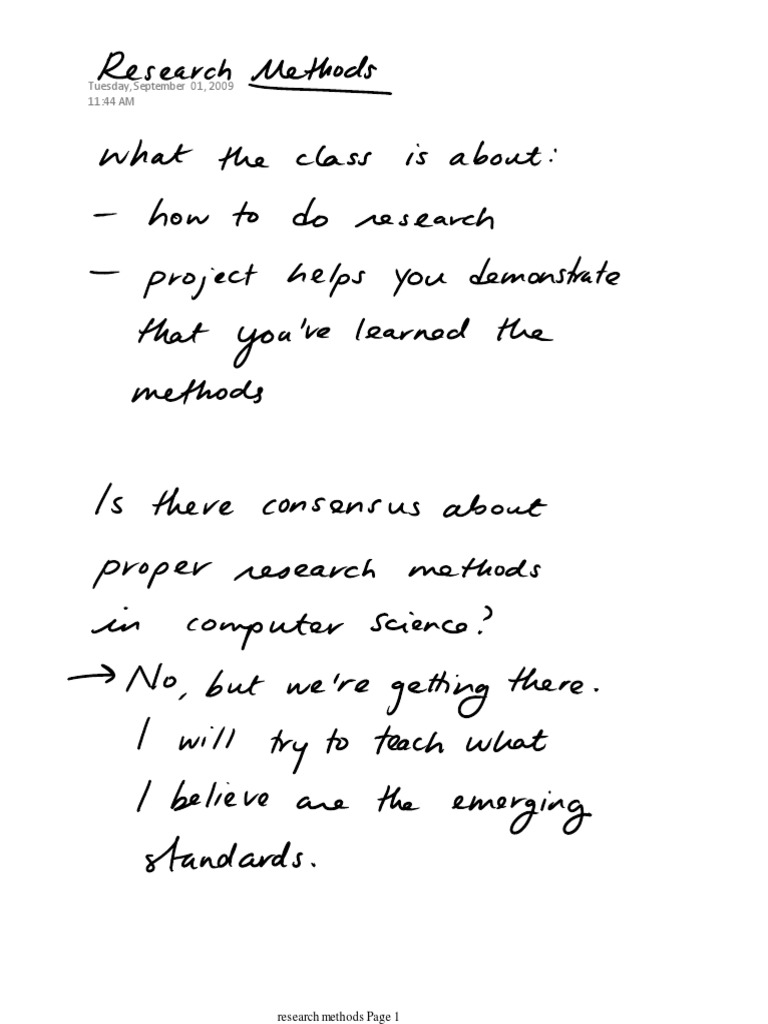 Research Methods
Tuesday, September 01, 2009
11:44 AM
what the class is about:
- how to do research
- project helps you demonstrate
that you've learned the
methods
Is there consensus about
proper research methods
in computer science?
→ No, but we're getting there.
I will try to teach what
I believe are the emerging
standards.
research methods Page 1